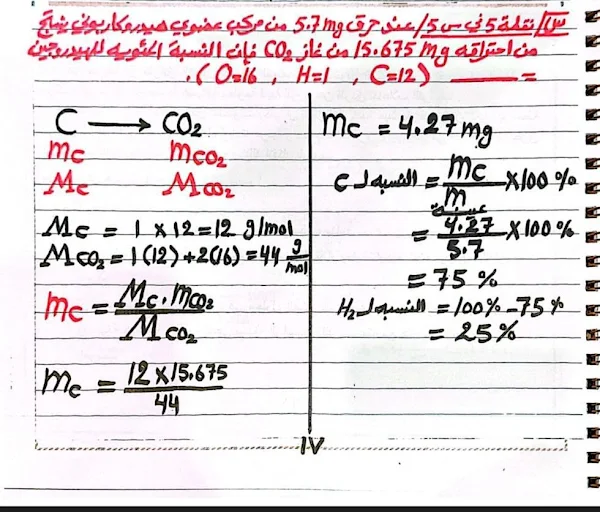 س/ نقطة 5 في س 5/ عند حرق 5.7 mg من مركب عضوي هيدروكاربوني ينتج
من احتراقه 15.675 mg من غاز CO₂ فإن النسبة المئوية للهيدروجين
= ـــــــــ (C=12 , H=1 , O=16).
C ⟶ CO₂
mc mco₂
Mc Mco₂
Mc = 1 × 12 = 12 g/mol
Mco₂ = 1(12) + 2(16) = 44 g/mol
mc = Mc . mco₂ / Mco₂
mc = 12 × 15.675 / 44
mc = 4.27 mg
النسبه لـ C = mc / m عينة × 100 %
= 4.27 / 5.7 × 100 %
= 75 %
النسبه لـ H₂ = 100% - 75 %
= 25 %
١٧